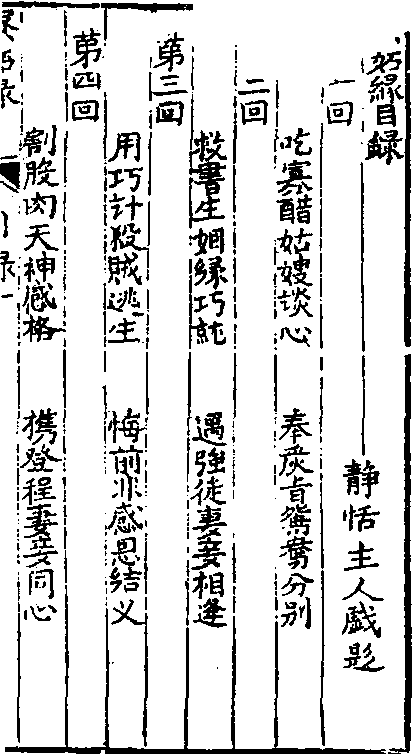 妬緣目録
静恬主人戯题
一回
吃寡醋姑嫂談心 奉嚴旨鴛鴦分别
二回
救書生姻緣巧就 遇強徒妻妾相逢
第三回
用巧計殺賊逃生 悔前非感恩結义
第四回
割股肉天神感格 携登程妻妾同心